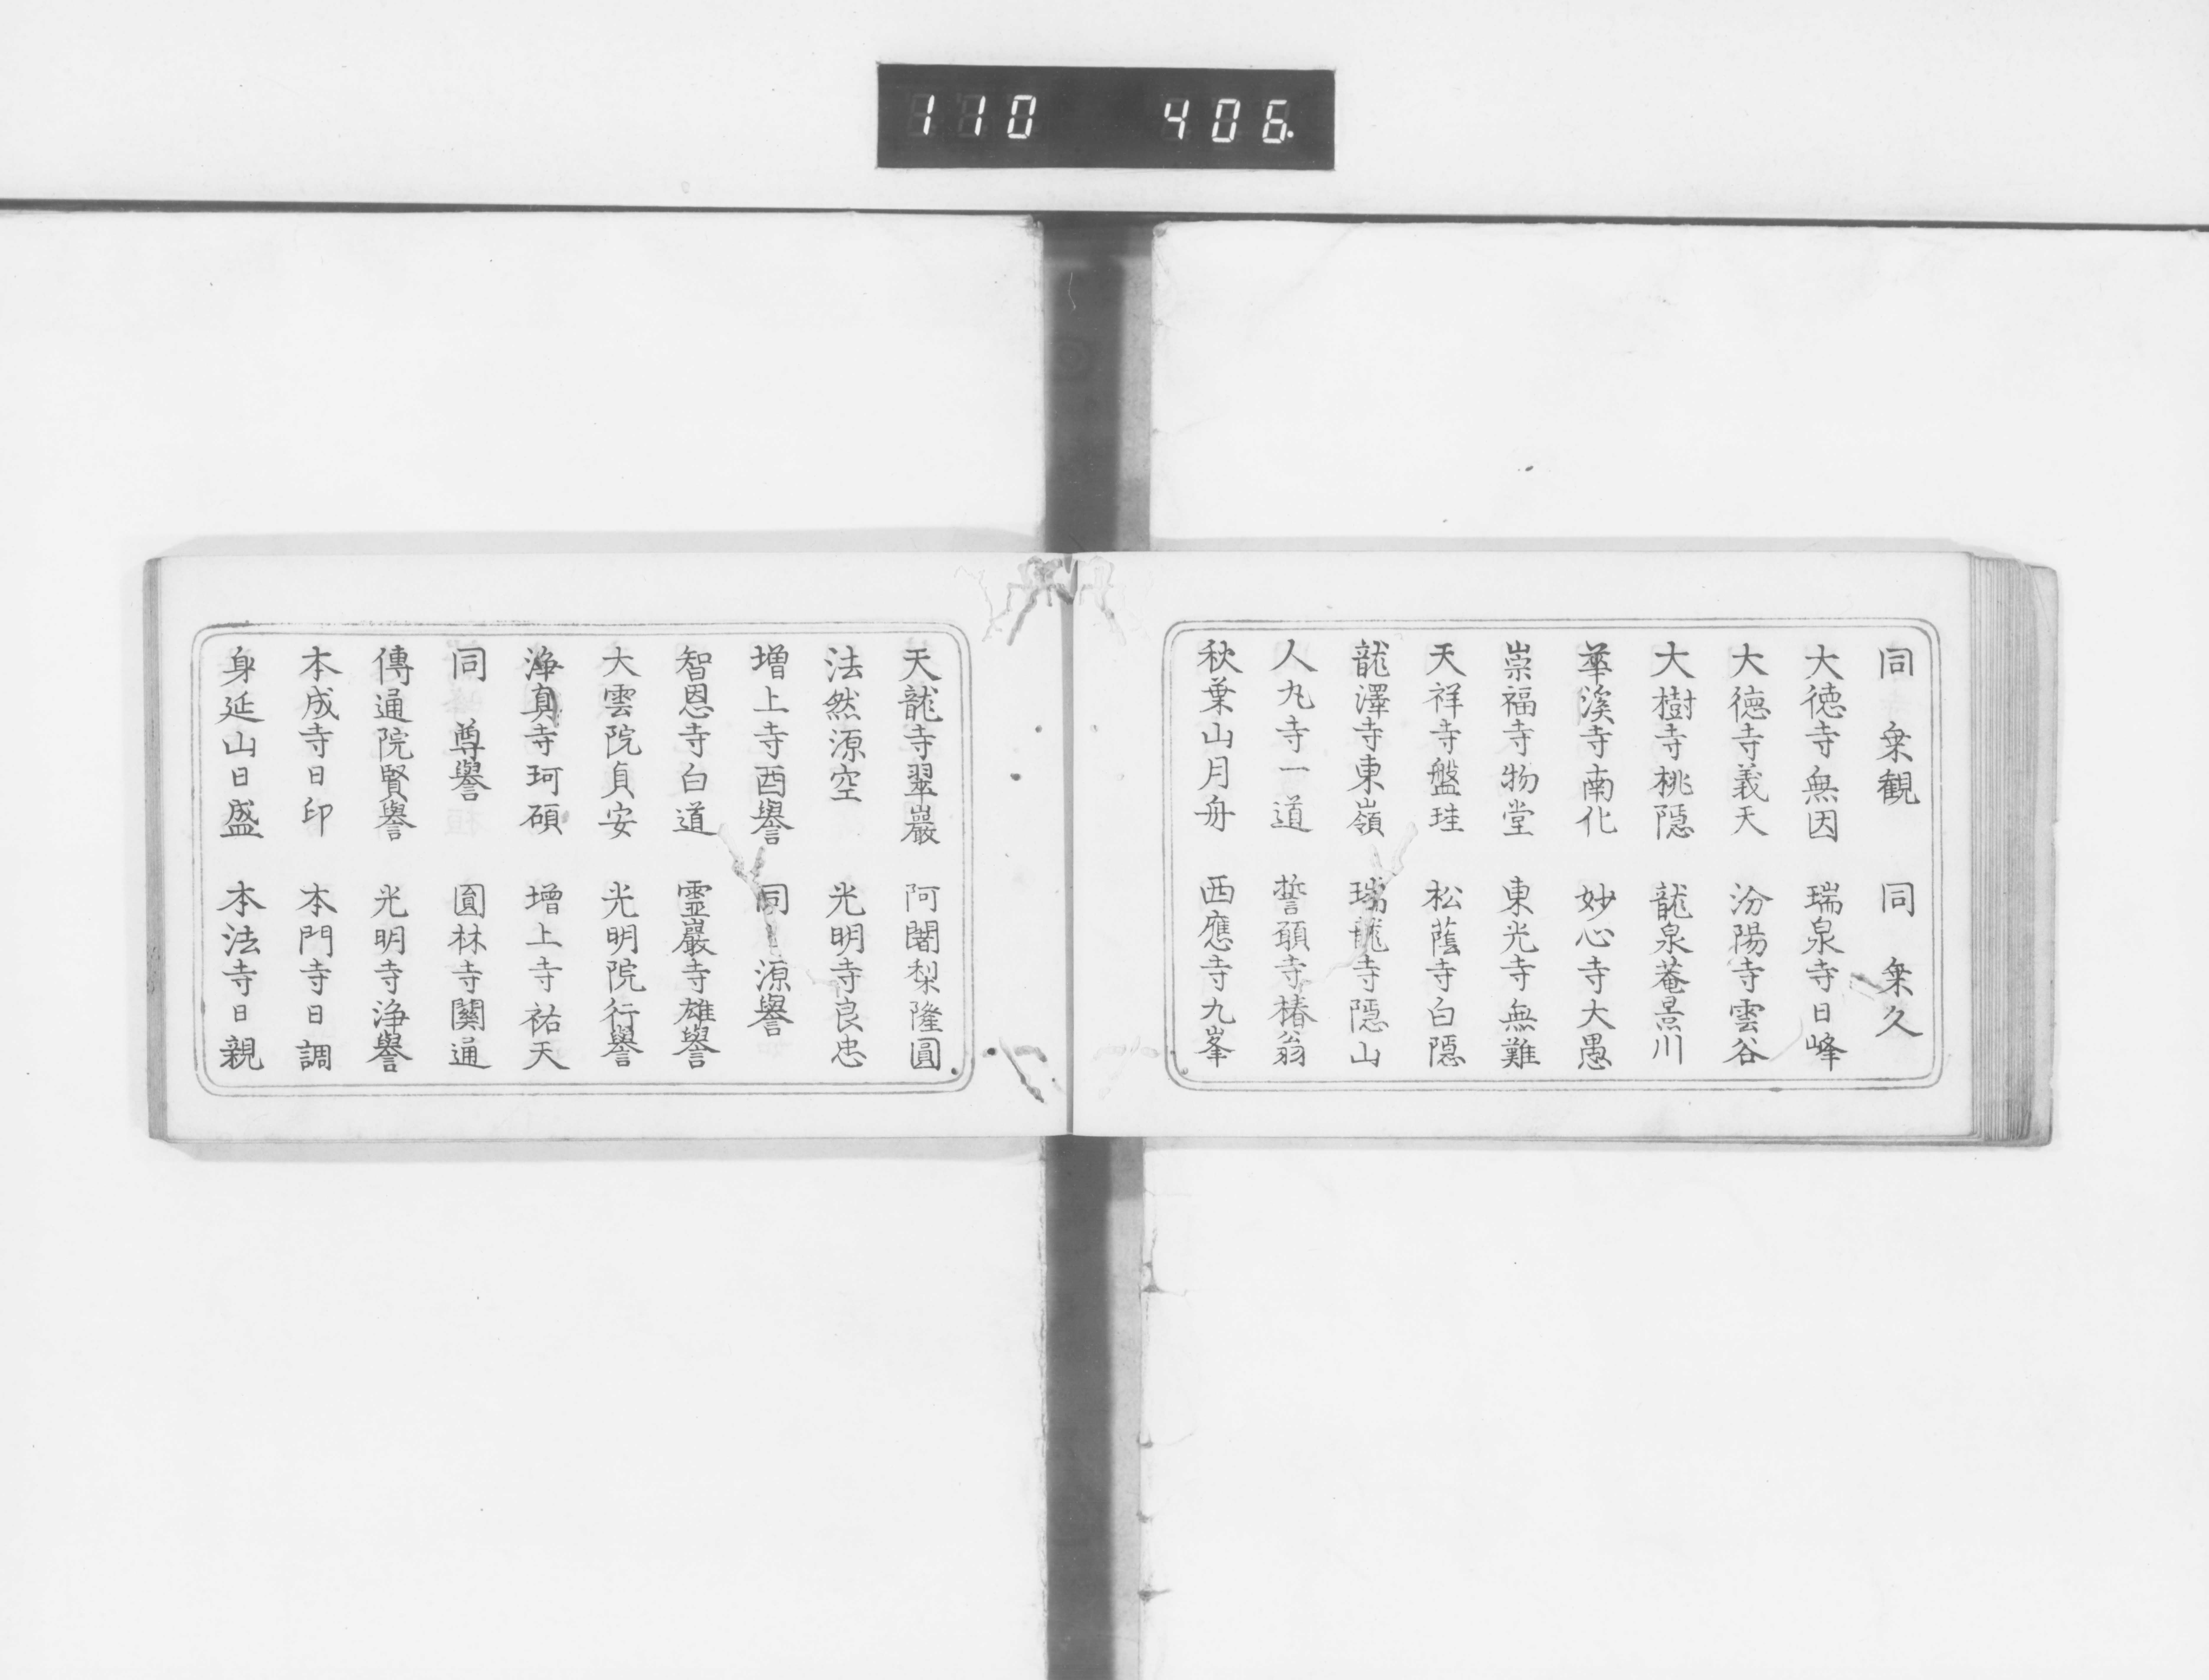 110 406.
同 象観 同 象久
大徳寺無因 瑞泉寺日峰
大徳寺義天 汾陽寺雲谷
大樹寺桃隠 龍泉菴景川
華溪寺南化 妙心寺大愚
崇福寺物堂 東光寺無難
天祥寺盤珪 松蔭寺白隠
龍澤寺東嶺 瑞龍寺隠山
人丸寺一道 誓願寺椿翁
秋葉山月舟 西應寺九峯
天龍寺翠巖 阿闍梨隆圓
法然源空 光明寺良忠
増上寺酉譽 同 源譽
智恩寺白道 霊巖寺雄譽
大雲院貞安 光明院行譽
浄真寺珂碩 増上寺祐天
同 尊譽 圓林寺關通
傳通院賢譽 光明寺浄譽
本成寺日印 本門寺日調
身延山日盛 本法寺日親